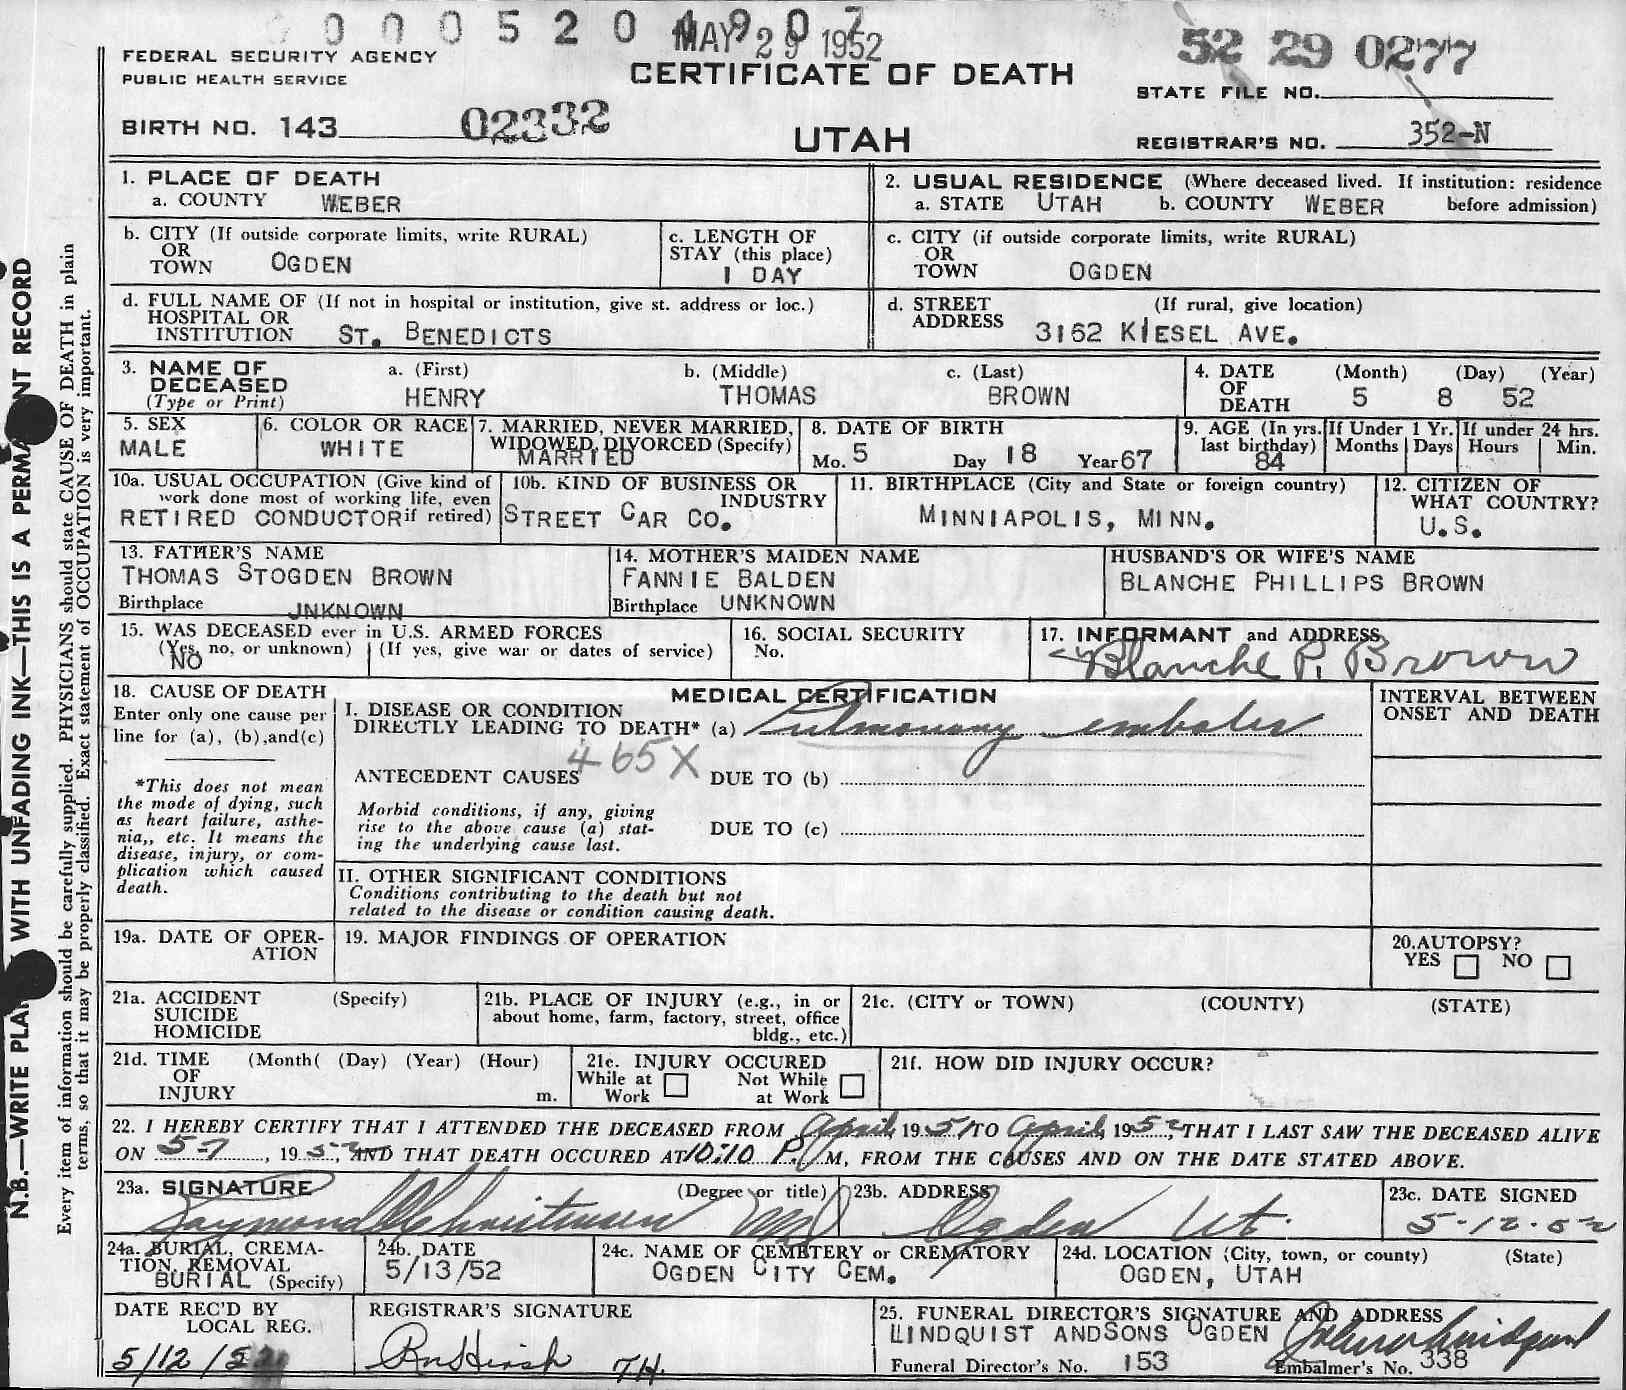 0 0 0 5 2 0 1 9 0 7
MAY 29 1952
52 29 0277
FEDERAL SECURITY AGENCY
PUBLIC HEALTH SERVICE
CERTIFICATE OF DEATH
STATE FILE NO.
BIRTH NO. 143 02332
UTAH
REGISTRAR'S NO. 352-N
N.B.—WRITE PLA WITH UNFADING INK—THIS IS A PERMA NT RECORD
Every item of information should be carefully supplied. PHYSICIANS should state CAUSE OF DEATH in plain
terms, so that it may be properly classified. Exact statement of OCCUPATION is very important.
1. PLACE OF DEATH
a. COUNTY WEBER
2. USUAL RESIDENCE (Where deceased lived. If institution: residence
a. STATE UTAH b. COUNTY WEBER before admission)
b. CITY (If outside corporate limits, write RURAL)
OR
TOWN OGDEN
c. LENGTH OF
STAY (this place)
1 DAY
c. CITY (if outside corporate limits, write RURAL)
OR
TOWN OGDEN
d. FULL NAME OF (If not in hospital or institution, give st. address or loc.)
HOSPITAL OR
INSTITUTION ST. BENEDICTS
d. STREET (If rural, give location)
ADDRESS 3162 KIESEL AVE.
3. NAME OF a. (First) b. (Middle) c. (Last)
DECEASED HENRY THOMAS BROWN
(Type or Print)
4. DATE (Month) (Day) (Year)
OF
DEATH 5 8 52
5. SEX
MALE
6. COLOR OR RACE
WHITE
7. MARRIED, NEVER MARRIED,
WIDOWED, DIVORCED (Specify)
MARRIED
8. DATE OF BIRTH
Mo. 5 Day 18 Year 67
9. AGE (In yrs.
last birthday)
84
If Under 1 Yr.
Months Days
If under 24 hrs.
Hours Min.
10a. USUAL OCCUPATION (Give kind of
work done most of working life, even
RETIRED CONDUCTOR if retired)
10b. KIND OF BUSINESS OR
INDUSTRY
STREET CAR CO.
11. BIRTHPLACE (City and State or foreign country)
MINNIAPOLIS, MINN.
12. CITIZEN OF
WHAT COUNTRY?
U.S.
13. FATHER'S NAME
THOMAS STOGDEN BROWN
Birthplace UNKNOWN
14. MOTHER'S MAIDEN NAME
FANNIE BALDEN
Birthplace UNKNOWN
HUSBAND'S OR WIFE'S NAME
BLANCHE PHILLIPS BROWN
15. WAS DECEASED ever in U.S. ARMED FORCES
(Yes, no, or unknown) (If yes, give war or dates of service)
NO
16. SOCIAL SECURITY
No.
17. INFORMANT and ADDRESS
Blanche P. Brown
18. CAUSE OF DEATH
Enter only one cause per
line for (a), (b),and(c)
*This does not mean
the mode of dying, such
as heart failure, asthe-
nia,, etc. It means the
disease, injury, or com-
plication which caused
death.
MEDICAL CERTIFICATION
I. DISEASE OR CONDITION
DIRECTLY LEADING TO DEATH* (a) Pulmonary embolus
465X
ANTECEDENT CAUSES DUE TO (b)
Morbid conditions, if any, giving
rise to the above cause (a) stat-
ing the underlying cause last.
DUE TO (c)
II. OTHER SIGNIFICANT CONDITIONS
Conditions contributing to the death but not
related to the disease or condition causing death.
INTERVAL BETWEEN
ONSET AND DEATH
19a. DATE OF OPER-
ATION
19. MAJOR FINDINGS OF OPERATION
20.AUTOPSY?
YES NO
21a. ACCIDENT (Specify)
SUICIDE
HOMICIDE
21b. PLACE OF INJURY (e.g., in or
about home, farm, factory, street, office
bldg., etc.)
21c. (CITY or TOWN) (COUNTY) (STATE)
21d. TIME (Month( (Day) (Year) (Hour)
OF
INJURY m.
21e. INJURY OCCURED
While at Not While
Work at Work
21f. HOW DID INJURY OCCUR?
22. I HEREBY CERTIFY THAT I ATTENDED THE DECEASED FROM April, 1951 TO April, 1952, THAT I LAST SAW THE DECEASED ALIVE
ON 5-7, 1952, AND THAT DEATH OCCURED AT 10:10 P. M, FROM THE CAUSES AND ON THE DATE STATED ABOVE.
23a. SIGNATURE (Degree or title)
Raymond Christensen MD
23b. ADDRESS
Ogden Ut.
23c. DATE SIGNED
5-12-52
24a. BURIAL, CREMA-
TION, REMOVAL
BURIAL (Specify)
24b. DATE
5/13/52
24c. NAME OF CEMETERY or CREMATORY
OGDEN CITY CEM.
24d. LOCATION (City, town, or county) (State)
OGDEN, UTAH
DATE REC'D BY
LOCAL REG.
5/12/52
REGISTRAR'S SIGNATURE
T.H.
25. FUNERAL DIRECTOR'S SIGNATURE AND ADDRESS
LINDQUIST ANDSONS OGDEN
Funeral Director's No. 153
Embalmer's No. 338